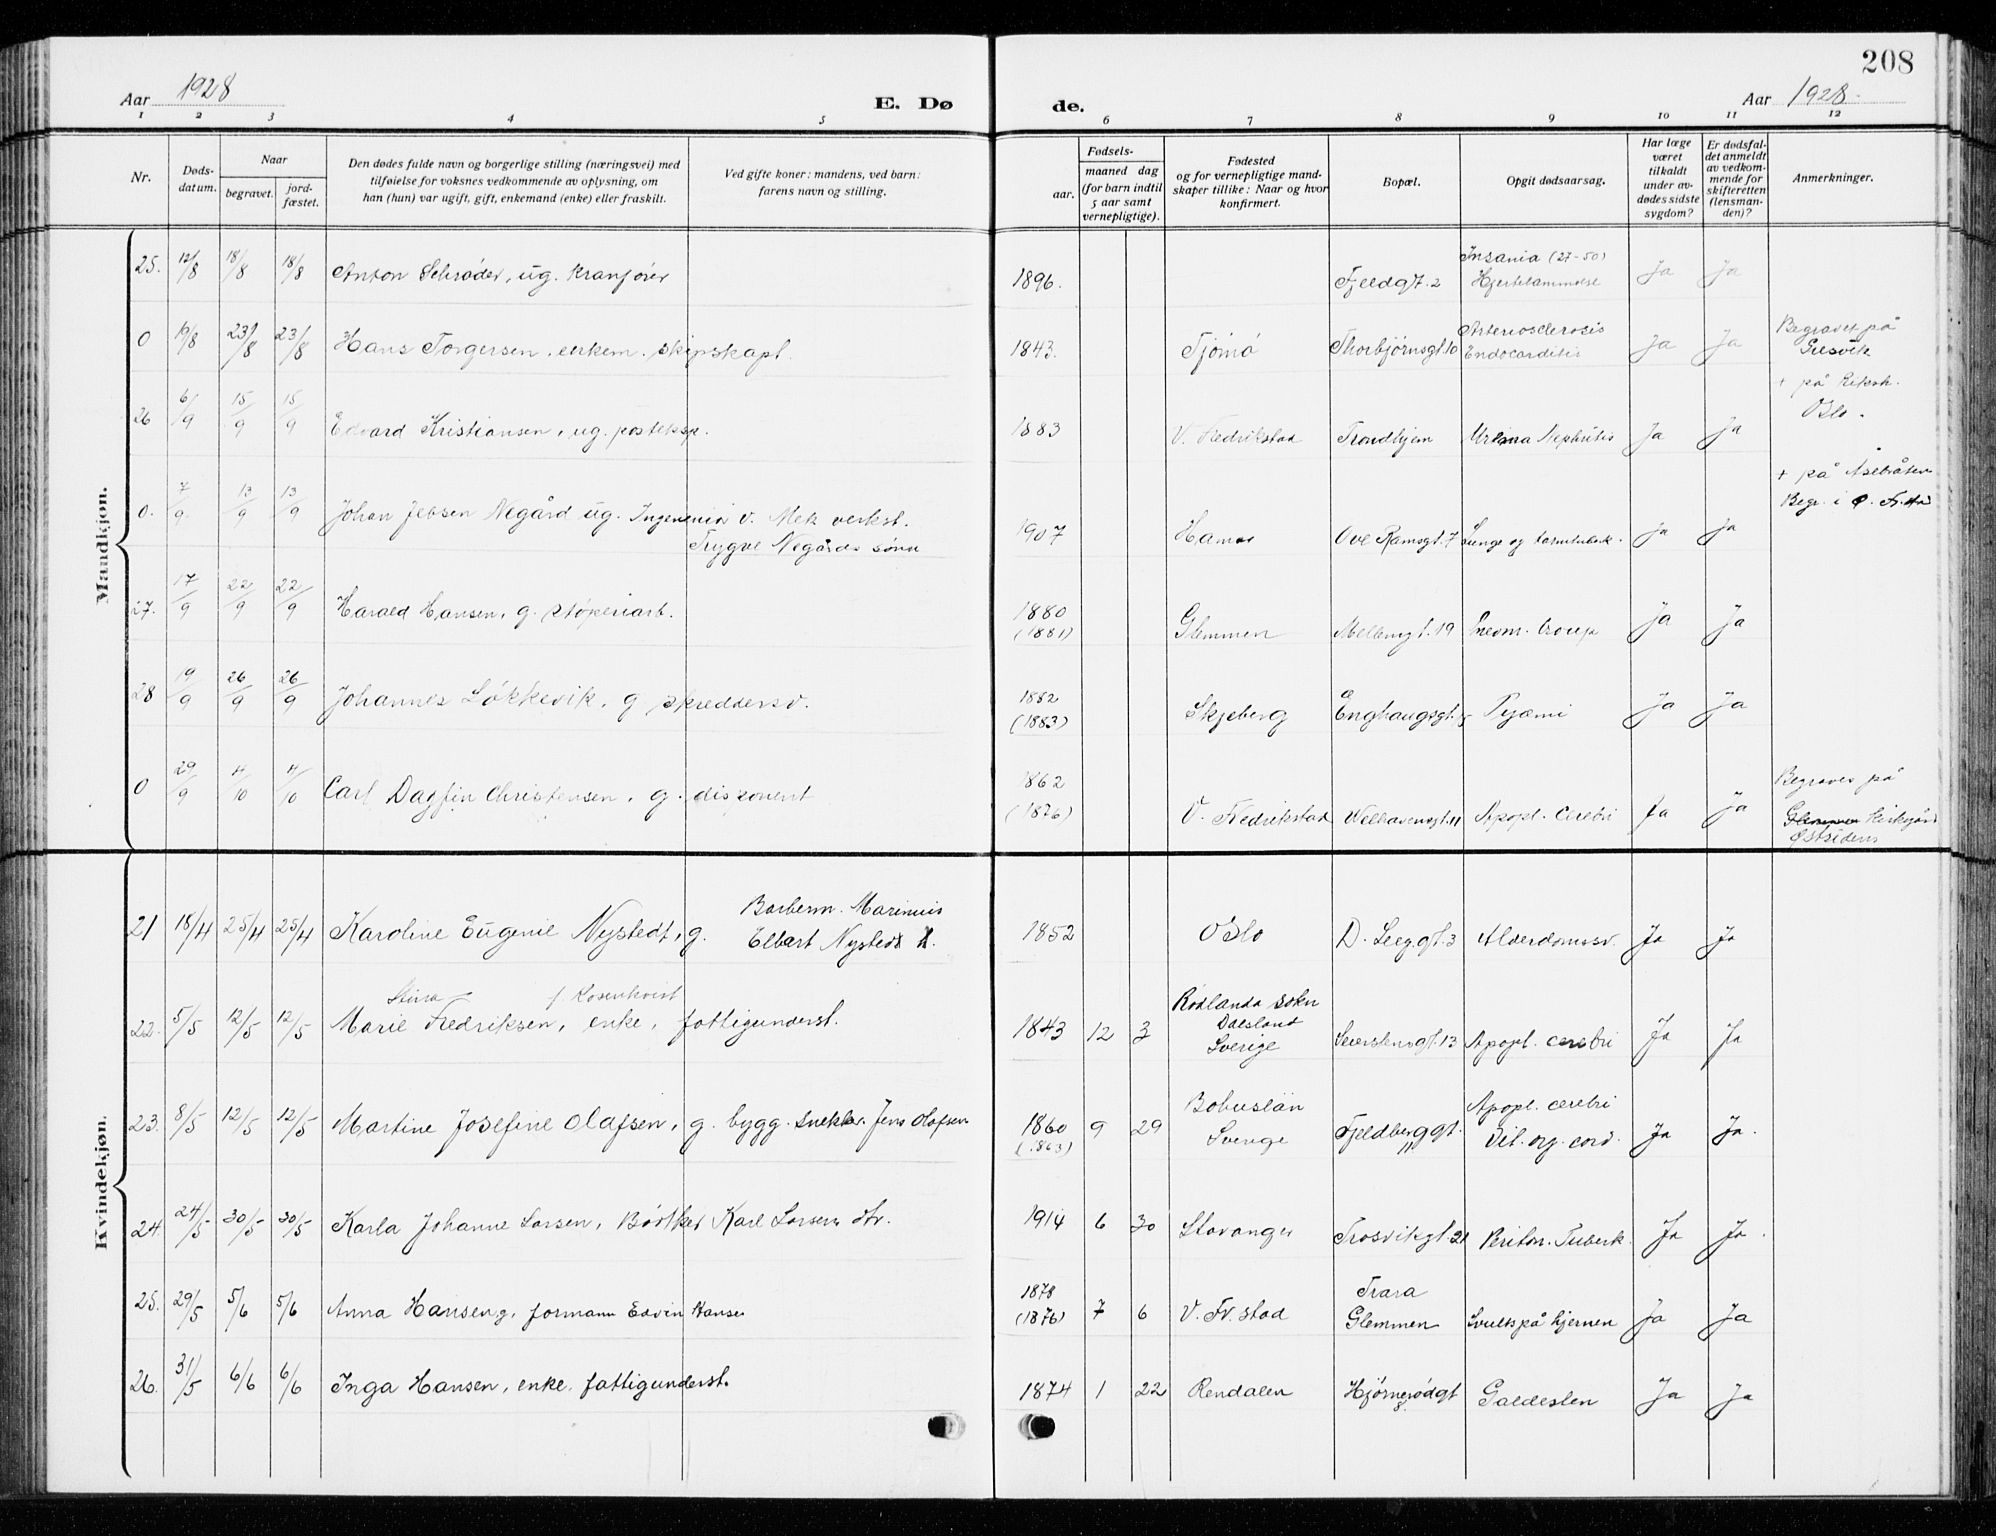 208
Aar 1928 E. Dø de. Aar 1928.
1 2 3 4 5 6 7 8 9 10 11 12
Nr.
Døds-
datum.
Naar
begravet.
jord-
fæstet.
Den dødes fulde navn og borgerlige stilling (næringsvei) med
tilføielse for voksnes vedkommende av oplysning, om
han (hun) var ugift, gift, enkemand (enke) eller fraskilt.
Ved gifte koner: mandens, ved barn:
farens navn og stilling.
Fødsels-
aar.
maaned dag
(for barn indtil
5 aar samt
vernepligtige).
Fødested
og for vernepligtige mand-
skaper tillike: Naar og hvor
konfirmert.
Bopæl.
Opgit dødsaarsag.
Har læge
været
tilkaldt
under av-
dødes sidste
sygdom?
Er dødsfal-
det anmeldt
av vedkom-
mende for
skifteretten
(lensman-
den)?
Anmerkninger.
Mandkjøn.
25. 12/8 18/8 18/8 Anton Schrøder, ug. kranfører 1896. Fjeldgt. 2 Insania (27-50)
Hjertelammelse Ja Ja
0 19/8 23/8 23/8 Hans Torgersen, enkem. skipskapt. 1843. Tjømø Thorbjörnsgt. 10 Arteriosclerosis
Endocarditis Ja Ja Begravet på
Gresvik
26 6/9 15/9 15/9 Edvard Kristiansen, ug. posteksp. 1883 V. Fredrikstad Trondhjem Urema Nephritis Ja Ja + på Riksh.
Oslo.
0. 7/9 13/9 13/9 Johan Jebsen Negård ug. Ingeniør v. Mek verkst.
Trygve Negårds sønn 1907 Hamar Ove Ramsgt. 7 Lunge og tarmtuberk. Ja Ja + på Åsebråten
Begr. i Ø. Fr.stad
27. 17/9 22/9 22/9 Harald Hansen, g. støperiarb. 1880
(1881) Glemmen Mellemgt. 19 Pneom. croup Ja Ja
28 19/9 26/9 26/9 Johannes Løkkevik, g skreddersv. 1882
(1883) Skjeberg Enghaugsgt. 15 Pyæmi Ja Ja
0 29/9 4/10 4/10 Carl Dagfin Christensen, g. disponent 1862
(1876) V. Fredrikstad Welhavensgt. 11 Apopl. cerebri Ja Ja Begraves på
Glemmen kirkegård
Østsidens
Kvindekjøn.
21 18/4 25/4 25/4 Karoline Eugenie Nystedt, g. Barberm. Marinius
Elbert Nystedt 1852 Oslo D. Leeg.gt. 3 Alderdomssv. Ja Ja
Stina f. Rosenkvist
22. 5/5 12/5 12/5 Marie Fredriksen, enke, fattigunderst. 1843 12 3 Rødlanda sokn
Dalsland
Sverige Severstensgt. 13 Apopl. cerebri Ja Ja
23. 8/5 12/5 12/5 Martine Josefine Olafsen, g. bygg. snekker Jens Olafsen 1860
(1863) 9 29 Bohuslän
Sverige Fjeldberggt.
11 Apopl. cerebri
Vit. org. cord. Ja Ja.
24. 24/5 30/5 30/5 Karla Johanne Larsen, Bødtker Karl Larsens dtr. 1914 6 30 Stavanger Trosvikgt. 21 Periton. Tuberk. Ja Ja.
25. 29/5 5/6 5/6 Anna Hansen g, formann Edvin Hansen 1878
(1876) 7 6 V. Fr.stad Trara
Glemmen Svulst på hjernen Ja Ja
26. 31/5 6/6 6/6 Inga Hansen, enke. fattigunderst. 1874 1 22 Rendalen Hjørnerødgt
8. Galdesten Ja Ja